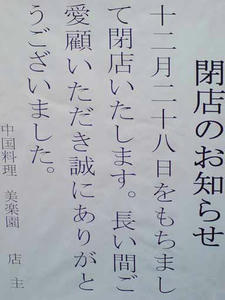 閉店のお知らせ
十二月二十八日をもちまし
て閉店いたします。長い間ご
愛顧いただき誠にありがと
うございました。
中国料理 美楽園 店主